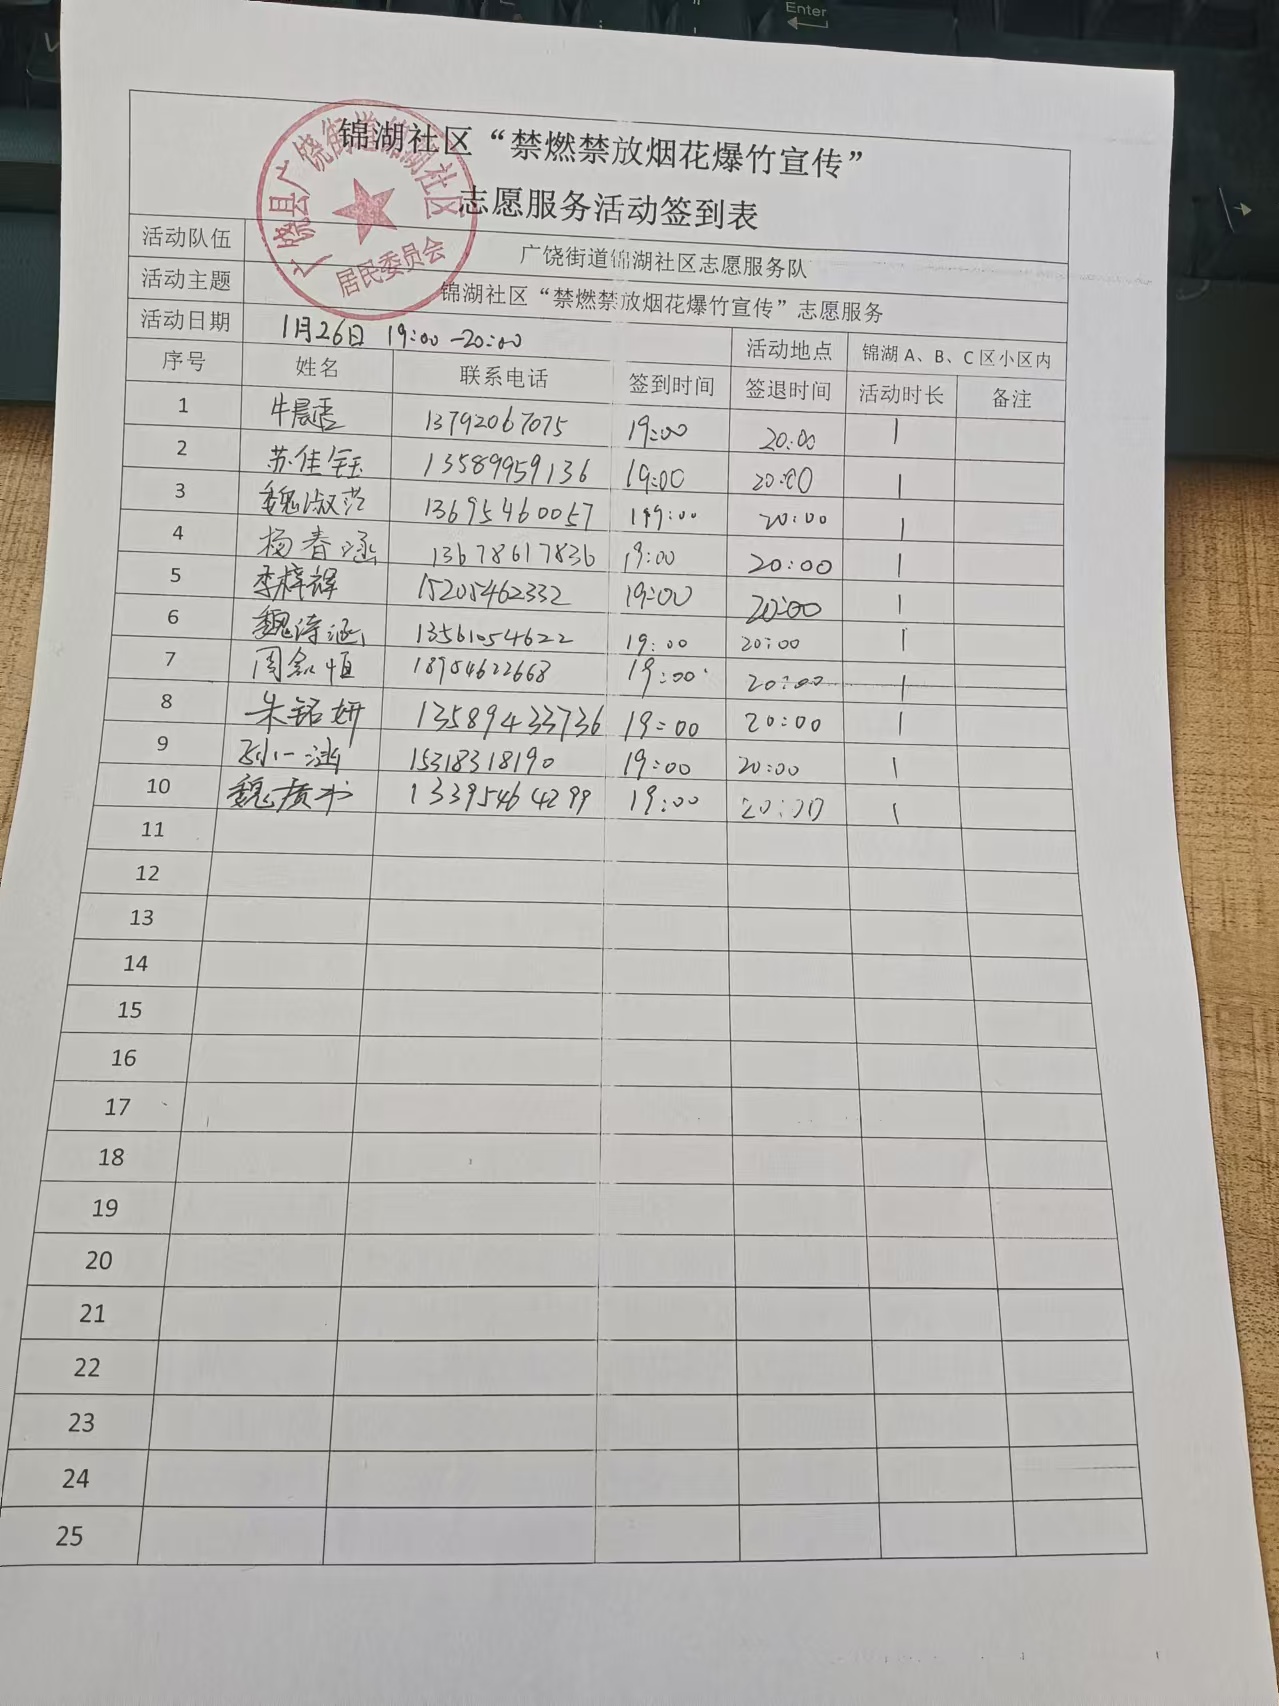 Enter
锦湖社区“禁燃禁放烟花爆竹宣传”
志愿服务活动签到表
广饶县广饶街道锦湖社区
居民委员会
活动队伍 广饶街道锦湖社区志愿服务队
活动主题 锦湖社区“禁燃禁放烟花爆竹宣传”志愿服务
活动日期 1月26日 19:00-20:00 活动地点 锦湖A、B、C区小区内
序号 姓名 联系电话 签到时间 签退时间 活动时长 备注
1 牛晨语 13792067075 19:00 20:00 1
2 苏佳钰 13589959136 19:00 20:00 1
3 魏淑范 13695460057 119:00 20:00 1
4 杨春涵 13678617836 19:00 20:00 1
5 李梓辉 15205462332 19:00 20:00 1
6 魏诗涵 13561054622 19:00 20:00 1
7 周 恒 18954622668 19:00 20:00 1
8 朱铭妍 13589433736 19:00 20:00 1
9 孙一涵 15318318190 19:00 20:00 1
10 魏 书 13395464299 19:00 20:00 1
11
12
13
14
15
16
17
18
19
20
21
22
23
24
25